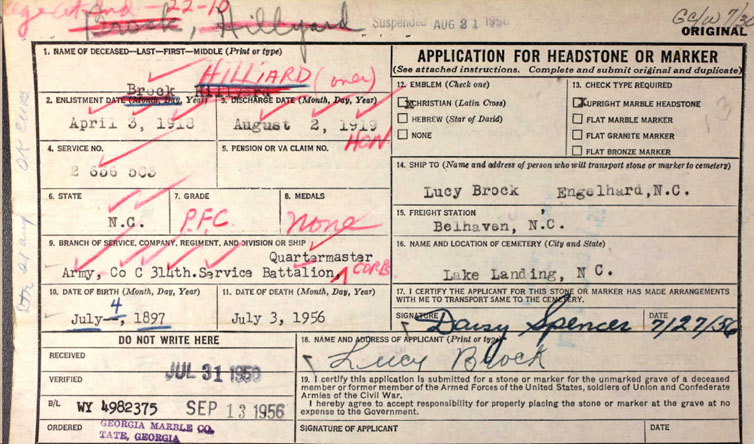 22-10
Brock, Hillyard
Suspended AUG 21 1956
ORIGINAL
1. NAME OF DECEASED—LAST—FIRST—MIDDLE (Print or type)
HILLIARD (over)
Brock Hillyard
2. ENLISTMENT DATE (Month, Day, Year)
April 3, 1918
3. DISCHARGE DATE (Month, Day, Year)
August 2, 1919
HON
4. SERVICE NO.
5. PENSION OR VA CLAIM NO.
6. STATE
N.C.
7. GRADE
P.F.C.
8. MEDALS
none
9. BRANCH OF SERVICE, COMPANY, REGIMENT, AND DIVISION OR SHIP
Quartermaster
Army, Co C 314th.Service Battalion, CORPS
10. DATE OF BIRTH (Month, Day, Year)
July 4, 1897
11. DATE OF DEATH (Month, Day, Year)
July 3, 1956
DO NOT WRITE HERE
RECEIVED
JUL 31 1956
VERIFIED
B/L WY 4982375 SEP 13 1956
ORDERED GEORGIA MARBLE CO.
TATE, GEORGIA
APPLICATION FOR HEADSTONE OR MARKER
(See attached instructions. Complete and submit original and duplicate)
12. EMBLEM (Check one)
X CHRISTIAN (Latin Cross)
HEBREW (Star of David)
NONE
13. CHECK TYPE REQUIRED
X UPRIGHT MARBLE HEADSTONE
FLAT MARBLE MARKER
FLAT GRANITE MARKER
FLAT BRONZE MARKER
13
14. SHIP TO (Name and address of person who will transport stone or marker to cemetery)
Lucy Brock Engelhard,N.C.
15. FREIGHT STATION
Belhaven, N.C.
16. NAME AND LOCATION OF CEMETERY (City and State)
Lake Landing, N C.
17. I CERTIFY THE APPLICANT FOR THIS STONE OR MARKER HAS MADE ARRANGEMENTS
WITH ME TO TRANSPORT SAME TO THE CEMETERY.
SIGNATURE
Daisy Spencer
DATE
7/27/56
18. NAME AND ADDRESS OF APPLICANT (Print or type)
Lucy Brock
19. I certify this application is submitted for a stone or marker for the unmarked grave of a deceased
member or former member of the Armed Forces of the United States, soldiers of Union and Confederate
Armies of the Civil War.
I hereby agree to accept responsibility for properly placing the stone or marker at the grave at no
expense to the Government.
SIGNATURE OF APPLICANT
DATE